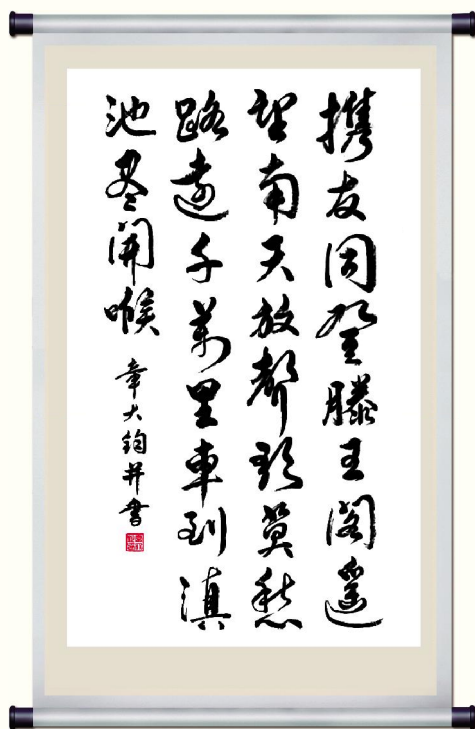 携友同登滕王阁遥
望南天放聲歌莫愁
路遠千萬里車到滇
池尽開喉
章大鈞并書